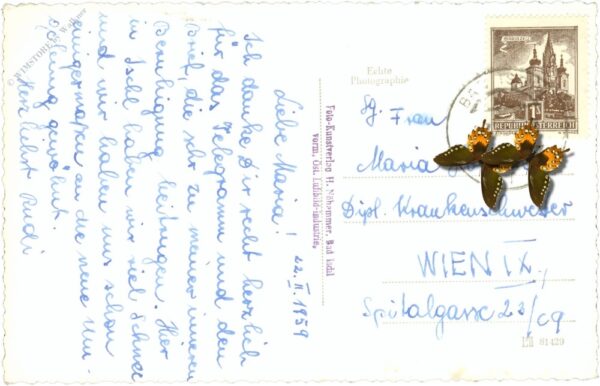 22. II. 1959
Liebe Maria!
Ich danke Dir recht herzlich
für das Telegramm und den
Brief, die sehr zu meiner inneren
Beruhigung beitrugen. Hier
in Ischl haben wir viel Schnee
und wir haben uns schon
einigermaßen an die neue Um-
gebung gewöhnt.
Herzlichst Rudi
Foto-Kunstverlag H. Nöhammer, Bad Ischl
vorm. Öst. Luftbild-industrie.
Echte
Photographie
REPUBLIK ÖSTERREICH
Frau
Maria
Dipl. Krankenschwester
WIEN IX,
Spitalgasse 23/
81429